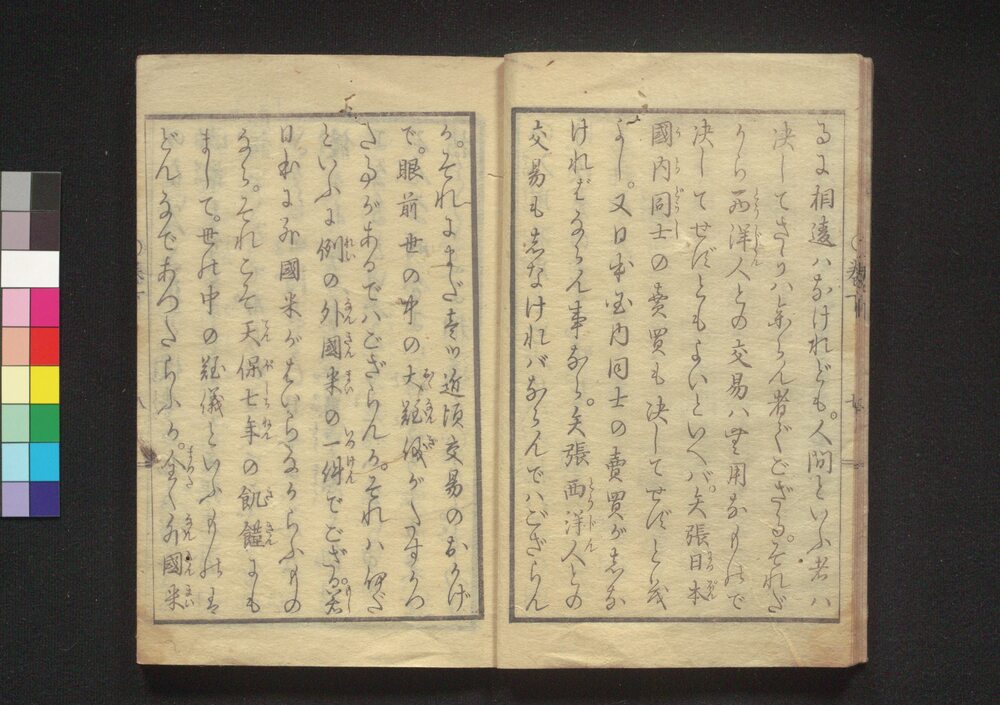 るに相違ハなけれども。人間といふ者ハ
決してさうハ参らん者でござる。それだ
から西洋人との交易ハ無用なものだ
決してせずともよいといへバ。矢張日本
國内同士の賣買も決してせずと義
よし。又日本国内同士の賣買がしな
ければならん事なら。矢張西洋人との
交易もしなけれバならんでハござらん
か。それにまだ近頃交易のおかげ
で。眼前世の中の大難儀がたすかつ
た事があるでハござらんか。それハ何だ
といふに例の外國米の一件でござる。若
日本に外國米がはいらなからふもの
なら。それこそ天保七年の飢饉にも
まして。世の中の難儀といふものは
どんなであつたらふか。全く外國米